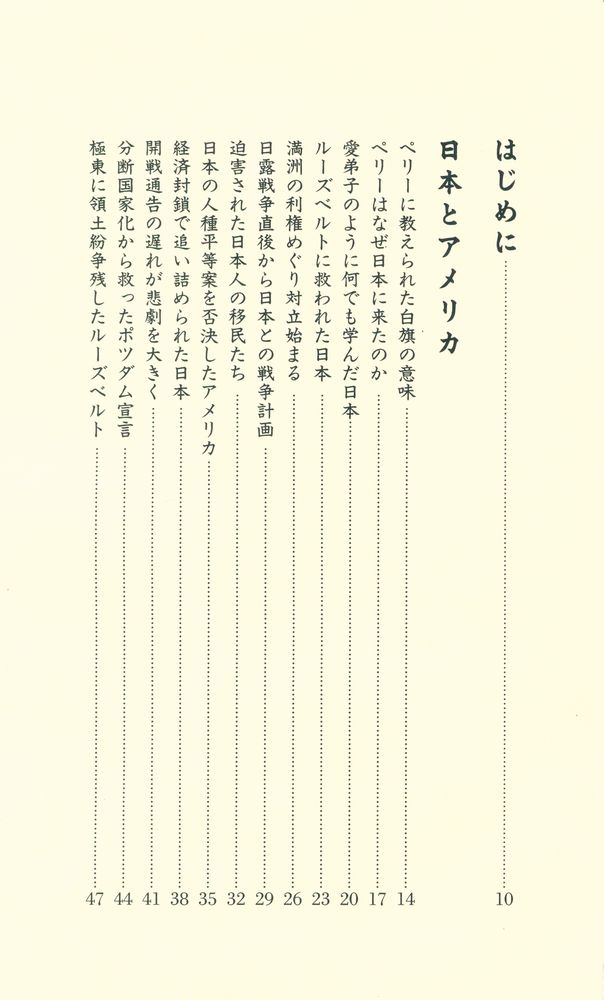 はじめに……10
日本とアメリカ
ペリーに教えられた白旗の意味……14
ペリーはなぜ日本に来たのか……17
愛弟子のように何でも学んだ日本……20
ルーズベルトに救われた日本……23
満洲の利権めぐり対立始まる……26
日露戦争直後から日本との戦争計画……29
迫害された日本人の移民たち……32
日本の人種平等案を否決したアメリカ……35
経済封鎖で追い詰められた日本……38
開戦通告の遅れが悲劇を大きく……41
分断国家化から救ったポツダム宣言……44
極東に領土紛争残したルーズベルト……47